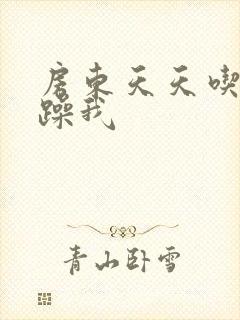 房东天天喫
躁我
青山卧雪